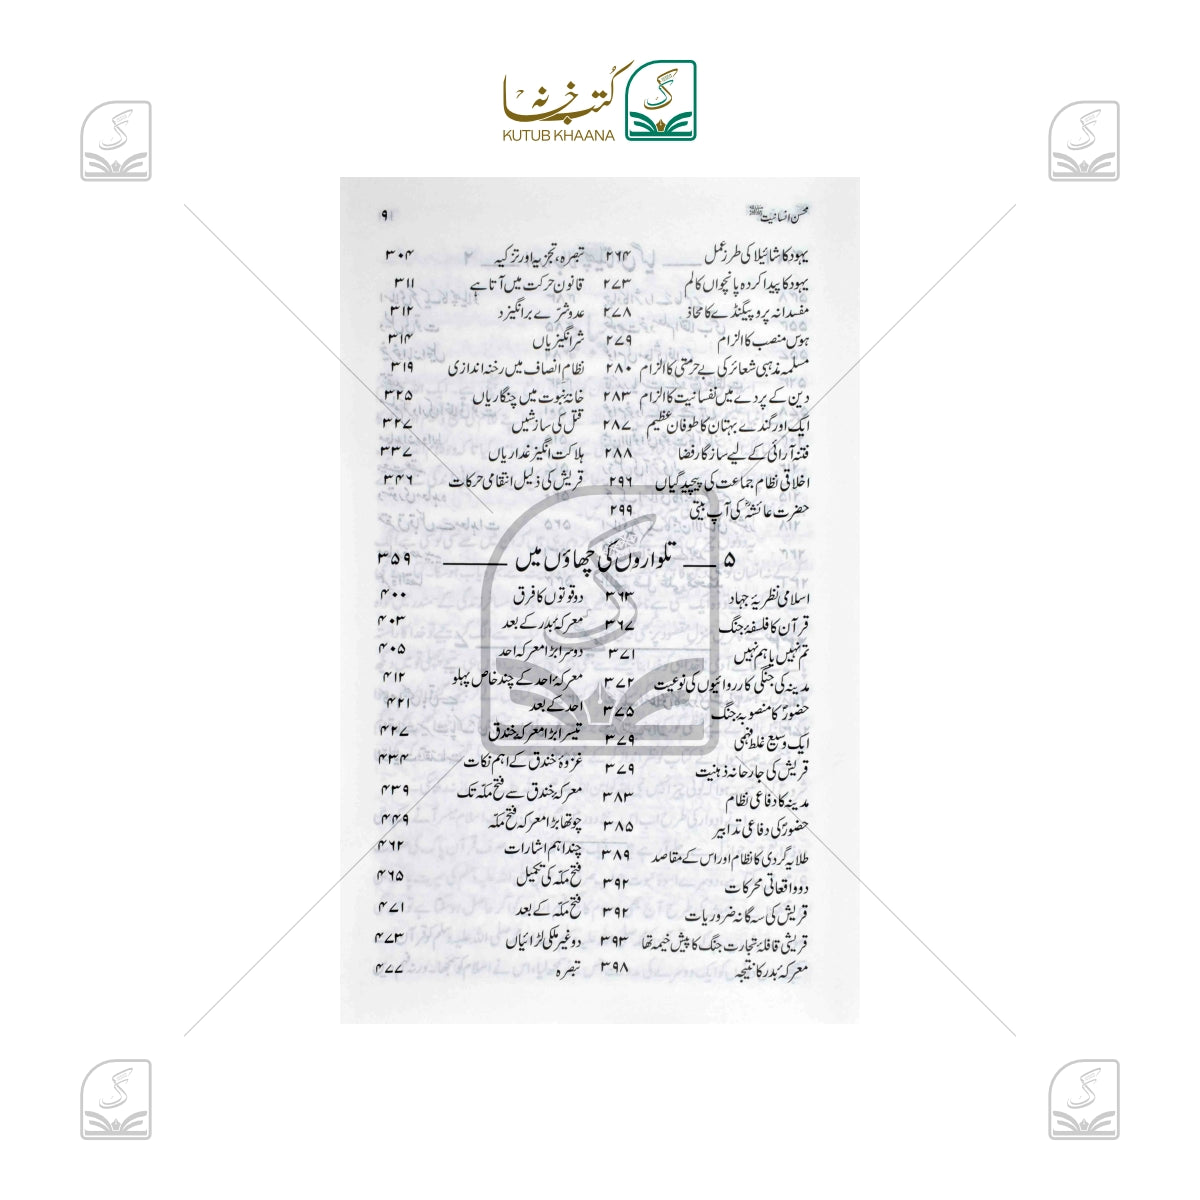 کتب خانہ
KUTUB KHAANA
محسن انسانیت ﷺ
۹
یہود کا شائیلا کی طرز عمل ۲۶۴
یہود کا پیدا کردہ پانچواں کالم ۲۷۳
مفسدانہ پروپیگنڈے کا محاذ ۲۷۸
ہوس منصب کا الزام ۲۷۹
مسلمہ مذہبی شعائر کی بے حرمتی کا الزام ۲۸۰
دین کے پردے میں نفسانیت کا الزام ۲۸۳
ایک اور گندے بہتان کا طوفان عظیم ۲۸۷
فتنہ آرائی کے لیے سازگار فضا ۲۸۸
اخلاقی نظام جماعت کی پیچیدگیاں ۲۹۶
حضرت عائشہؓ کی آپ بیتی ۲۹۹
تبصرہ، تجزیہ اور تزکیہ ۳۰۴
قانون حرکت میں آتا ہے ۳۱۱
عدو شرّے برانگیزد ۳۱۲
شر انگیزیاں ۳۱۴
نظام انصاف میں رخنہ اندازی ۳۱۹
خانۂ نبوت میں چنگاریاں ۳۲۵
قتل کی سازشیں ۳۲۷
ہلاکت انگیز غداریاں ۳۳۷
قریش کی ذلیل انتقامی حرکات ۳۴۶
۵ ـــ تلواروں کی چھاؤں میں ـــــــ ۳۵۹
اسلامی نظریۂ جہاد ۳۶۳
قرآن کا فلسفۂ جنگ ۳۶۷
تم نہیں یا ہم نہیں ۳۷۱
مدینہ کی جنگی کارروائیوں کی نوعیت ۳۷۲
حضورؐ کا منصوبۂ جنگ ۳۷۵
ایک وسیع غلط فہمی ۳۷۹
قریش کی جارحانہ ذہنیت ۳۷۹
مدینہ کا دفاعی نظام ۳۸۳
حضورؐ کی دفاعی تدابیر ۳۸۵
طلایہ گردی کا نظام اور اس کے مقاصد ۳۸۹
دو واقعاتی محرکات ۳۹۲
قریش کی سہ گانہ ضروریات ۳۹۲
قریشی قافلۂ تجارت جنگ کا پیش خیمہ تھا ۳۹۳
معرکۂ بدر کا نتیجہ ۳۹۸
دو قوتوں کا فرق ۴۰۰
معرکۂ بدر کے بعد ۴۰۳
دوسرا بڑا معرکہ احد ۴۰۵
معرکۂ احد کے چند خاص پہلو ۴۱۲
احد کے بعد ۴۲۱
تیسرا بڑا معرکہ خندق ۴۲۷
غزوۂ خندق کے اہم نکات ۴۳۴
معرکۂ خندق سے فتح مکّہ تک ۴۳۹
چوتھا بڑا معرکہ فتح مکّہ ۴۴۹
چند اہم اشارات ۴۶۲
فتح مکّہ کی تکمیل ۴۶۵
فتح مکّہ کے بعد ۴۷۱
دو غیر ملکی لڑائیاں ۴۷۳
تبصرہ ۴۷۷